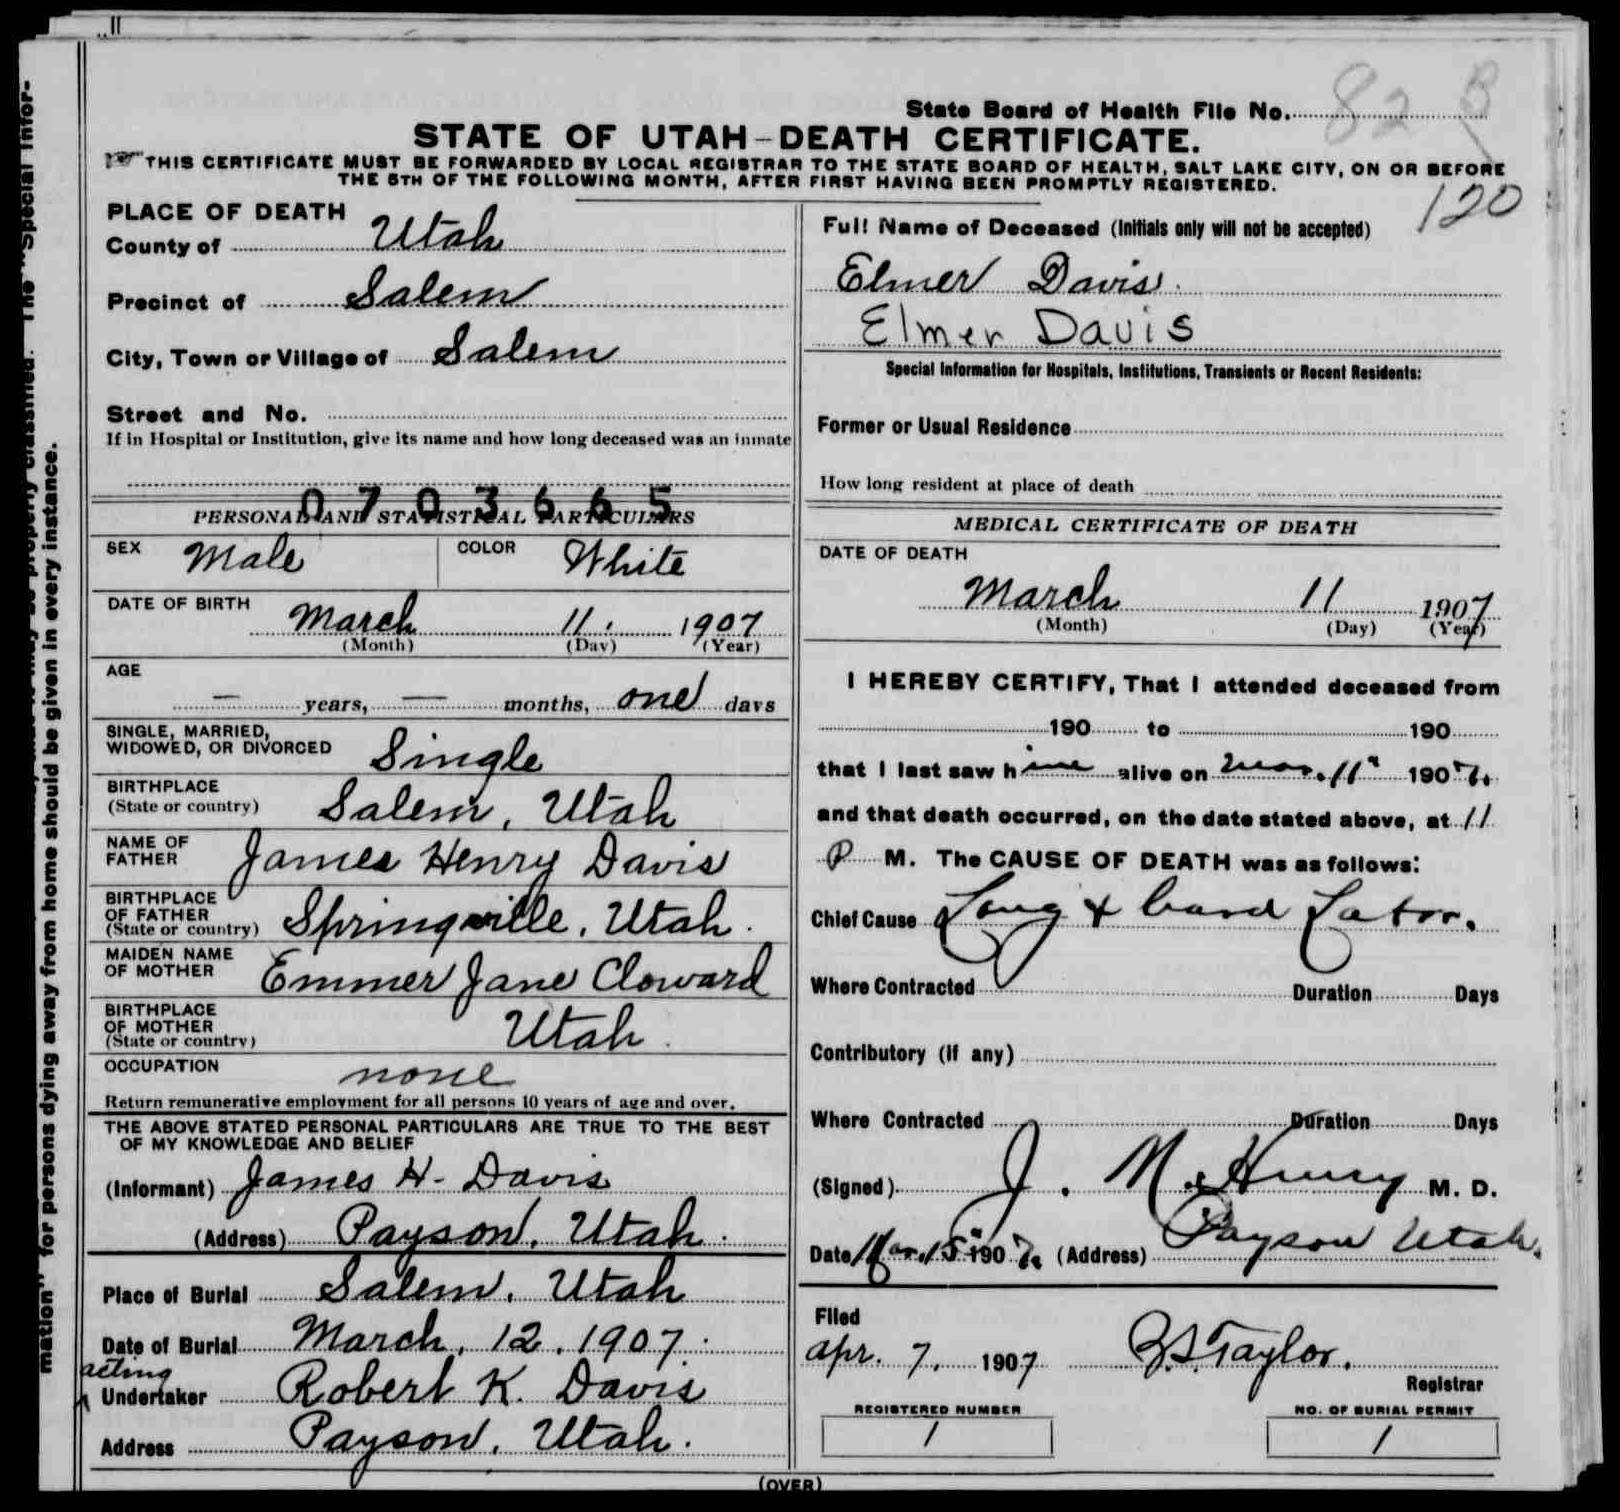 State Board of Health File No. 82 B
STATE OF UTAH-DEATH CERTIFICATE.
THIS CERTIFICATE MUST BE FORWARDED BY LOCAL REGISTRAR TO THE STATE BOARD OF HEALTH, SALT LAKE CITY, ON OR BEFORE
THE 5TH OF THE FOLLOWING MONTH, AFTER FIRST HAVING BEEN PROMPTLY REGISTERED.
120
PLACE OF DEATH
County of Utah
Precinct of Salem
City, Town or Village of Salem
Street and No.
If in Hospital or Institution, give its name and how long deceased was an inmate
0703665
PERSONAL AND STATISTICAL PARTICULARS
SEX Male COLOR White
DATE OF BIRTH March 11. 1907
(Month) (Day) (Year)
AGE
— years, — months, one days
SINGLE, MARRIED,
WIDOWED, OR DIVORCED Single
BIRTHPLACE
(State or country) Salem, Utah
NAME OF
FATHER James Henry Davis
BIRTHPLACE
OF FATHER
(State or country) Springville, Utah.
MAIDEN NAME
OF MOTHER Emmer Jane Cloward
BIRTHPLACE
OF MOTHER
(State or country) Utah.
OCCUPATION none
Return remunerative employment for all persons 10 years of age and over.
THE ABOVE STATED PERSONAL PARTICULARS ARE TRUE TO THE BEST
OF MY KNOWLEDGE AND BELIEF
(Informant) James H. Davis
(Address) Payson, Utah.
Place of Burial Salem, Utah
Date of Burial March, 12, 1907.
acting
Undertaker Robert K. Davis
Address Payson, Utah.
Full Name of Deceased (Initials only will not be accepted)
Elmer Davis.
Elmer Davis
Special Information for Hospitals, Institutions, Transients or Recent Residents:
Former or Usual Residence
How long resident at place of death
MEDICAL CERTIFICATE OF DEATH
DATE OF DEATH
March 11 1907
(Month) (Day) (Year)
I HEREBY CERTIFY, That I attended deceased from
190 to 190
that I last saw him alive on Mar. 11" 1907.
and that death occurred, on the date stated above, at 11
P M. The CAUSE OF DEATH was as follows:
Chief Cause Long & hard Labor.
Where Contracted Duration Days
Contributory (if any)
Where Contracted Duration Days
(Signed) J. M. Henry M. D.
Date Mar. 15" 1907. (Address) Payson Utah.
Filed
apr. 7, 1907 Taylor.
Registrar
REGISTERED NUMBER NO. OF BURIAL PERMIT
1 1
(OVER)
mation" for persons dying away from home should be given in every instance.
properly classified. The "Special Infor-